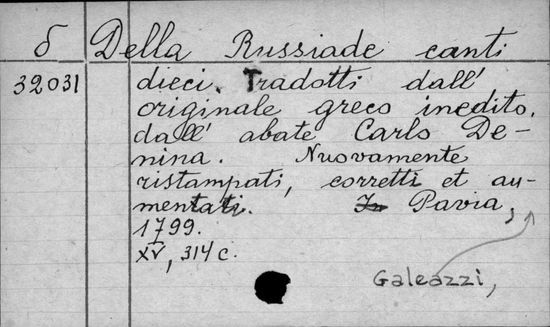 δ Della Russiade canti
32031 dieci. Tradotti dall'
originale greco inedito,
dall' abate Carlo De-
nina. Nuovamente
ristampati, corretti et au-
mentati. In Pavia,
1799.
XV, 314 c.
Galeazzi,